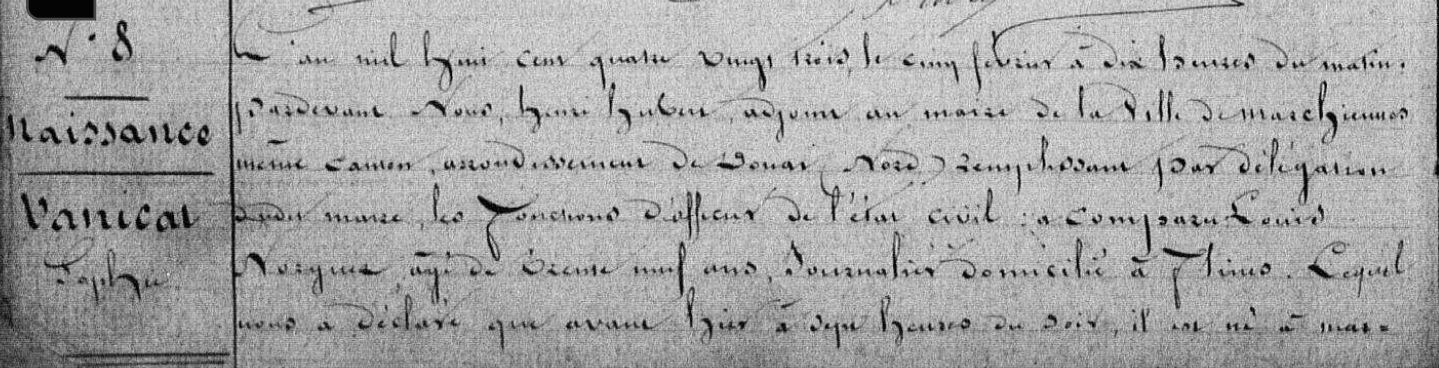 N° 8
Naissance
Vanicat
Sophie
L'an mil huit cent quatre vingt trois, le cinq février à dix heures du matin,
pardevant Nous, Henri Hubert, adjoint au maire de la Ville de Marchiennes
même canton, arrondissement de Douai (Nord) remplissant par délégation
dudit maire, les fonctions d'officier de l'état civil : a comparu Louis
Norguet, âgé de trente neuf ans, Journalier domicilié à Flines. Lequel
nous a déclaré que avant hier à sept heures du soir, il est né à mar=